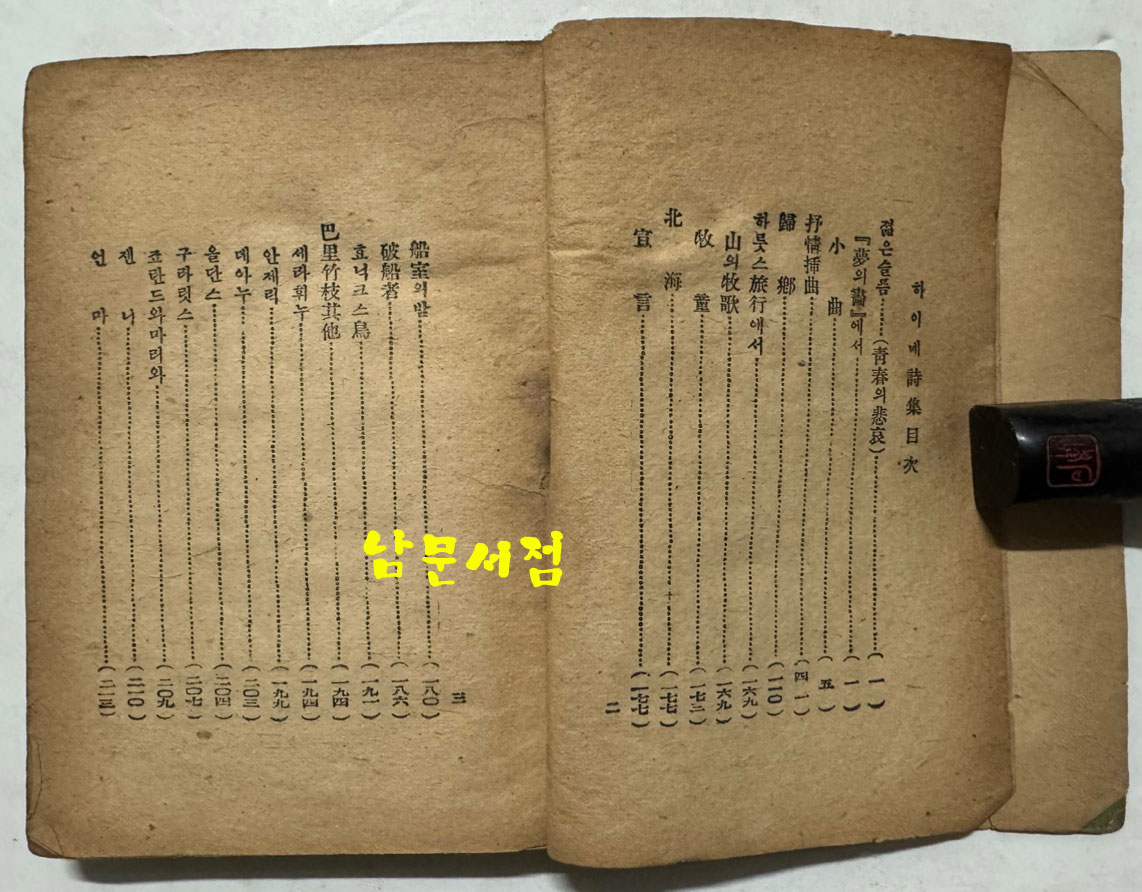 하이네詩集目次
젊은슬픔……(靑春의悲哀)……(一)
『夢의畵』에서……(一)
小曲……(五)
抒情揷曲……(四一)
歸鄕……(一一〇)
하릇스旅行에서……(一六九)
山의牧歌……(一六九)
牧童……(一七三)
北海……(一七七)
宣言……(一七七)
二
船室의밤……(一八〇)
破船者……(一八六)
효넉크스鳥……(一九一)
巴里竹枝其他……(一九四)
세라휘누……(一九四)
안제리……(一九九)
데아누……(二〇三)
올단스……(二〇四)
구라릿스……(二〇七)
죠탄드와마리와……(二〇九)
젠니……(二一〇)
언마……(二一三)
三
남문서점